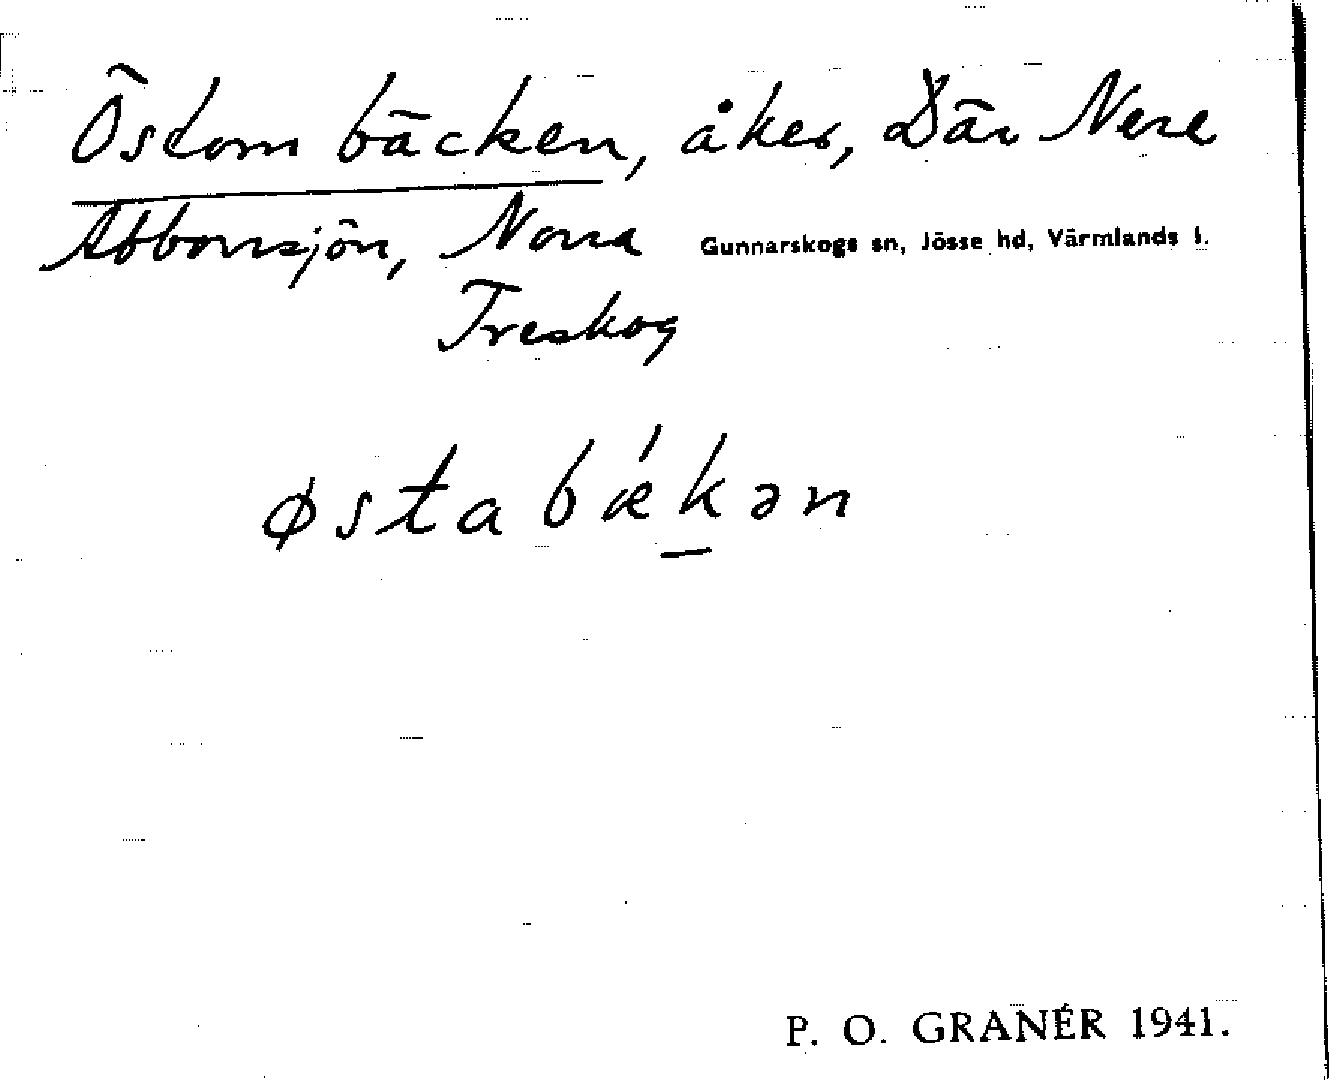 Östom bäcken, åker, Där Nere
Abborrsjön, Norra Gunnarskogs sn, Jösse hd, Värmlands l.
Treskog
østabǽkən
P. O. GRANÉR 1941.